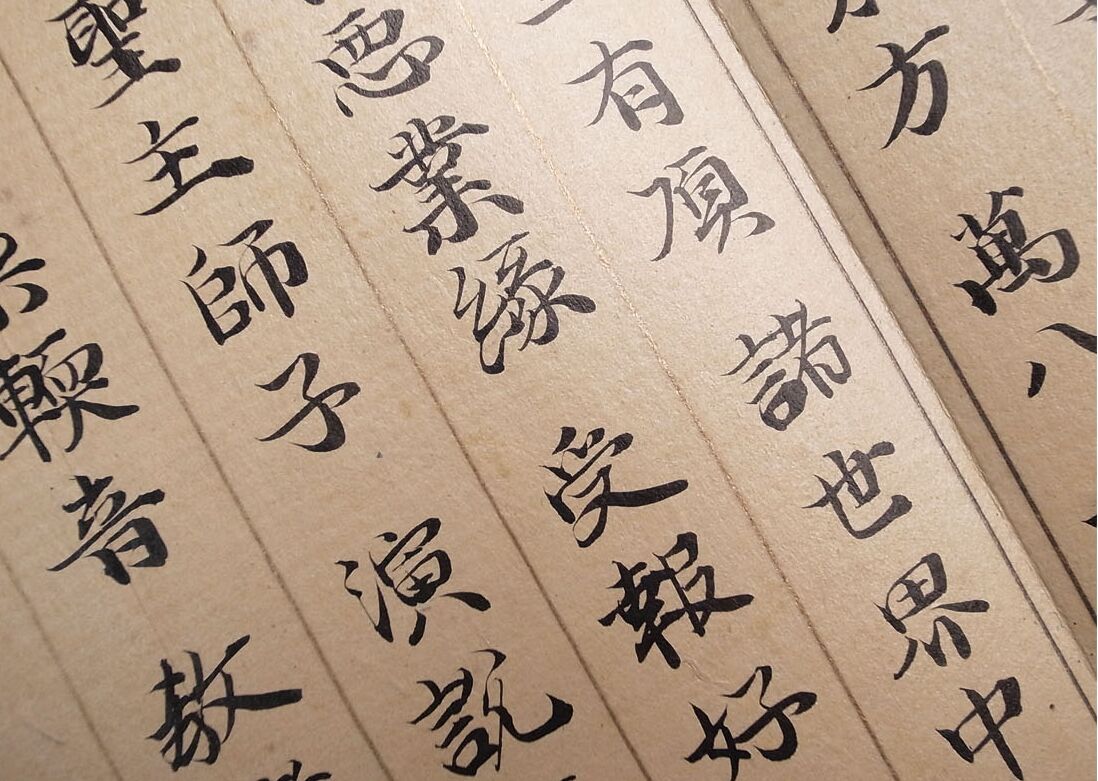 方 萬八
有頂 諸世界中
悪業緣 受報好
聖主師子 演說
輭音 教